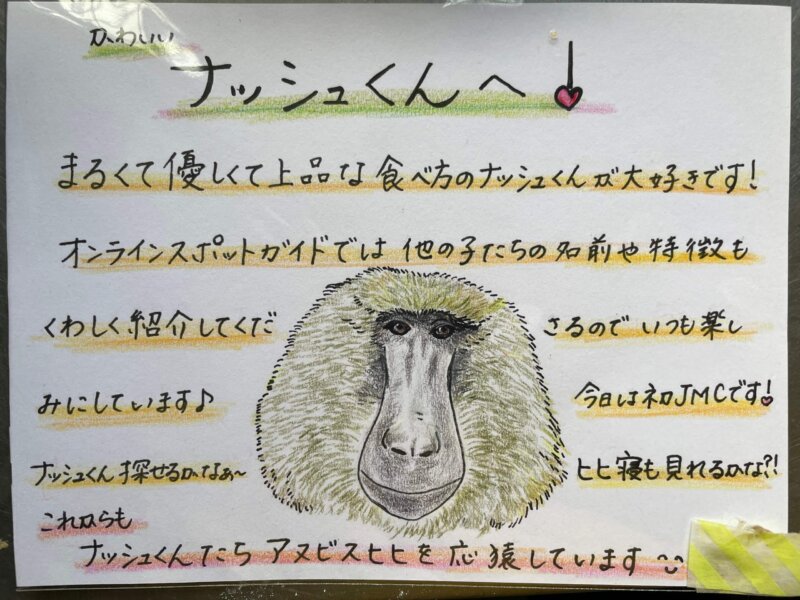 かわいい
ナッシュくんへ！
まるくて優しくて上品な食べ方のナッシュくんが大好きです！
オンラインスポットガイドでは他の子たちの名前や特徴も
くわしく紹介してくださるのでいつも楽し
みにしています♪
今日は初JMCです！
ナッシュくん探せるかなぁ～
ヒヒ寝も見れるかな?!
これからも
ナッシュくんたちアヌビスヒヒを応猿しています